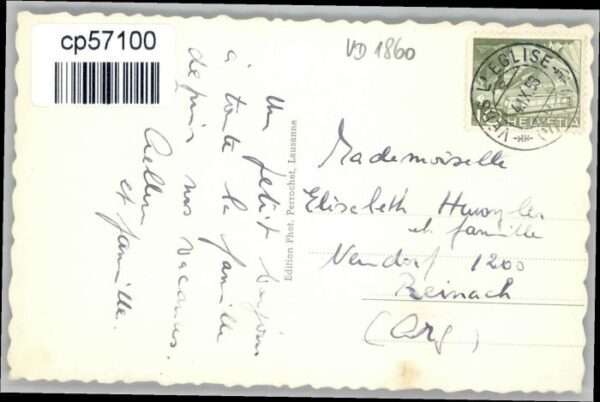 cp57100
VD 1860
VERS L'EGLISE
HELVETIA
Un petit bonjour
à toute la famille
depuis nos vacances.
et famille.
Edition Phot. Perrochet, Lausanne
Mademoiselle
Elisabeth
et famille
Neudorf 1200
Reinach
(Arg)